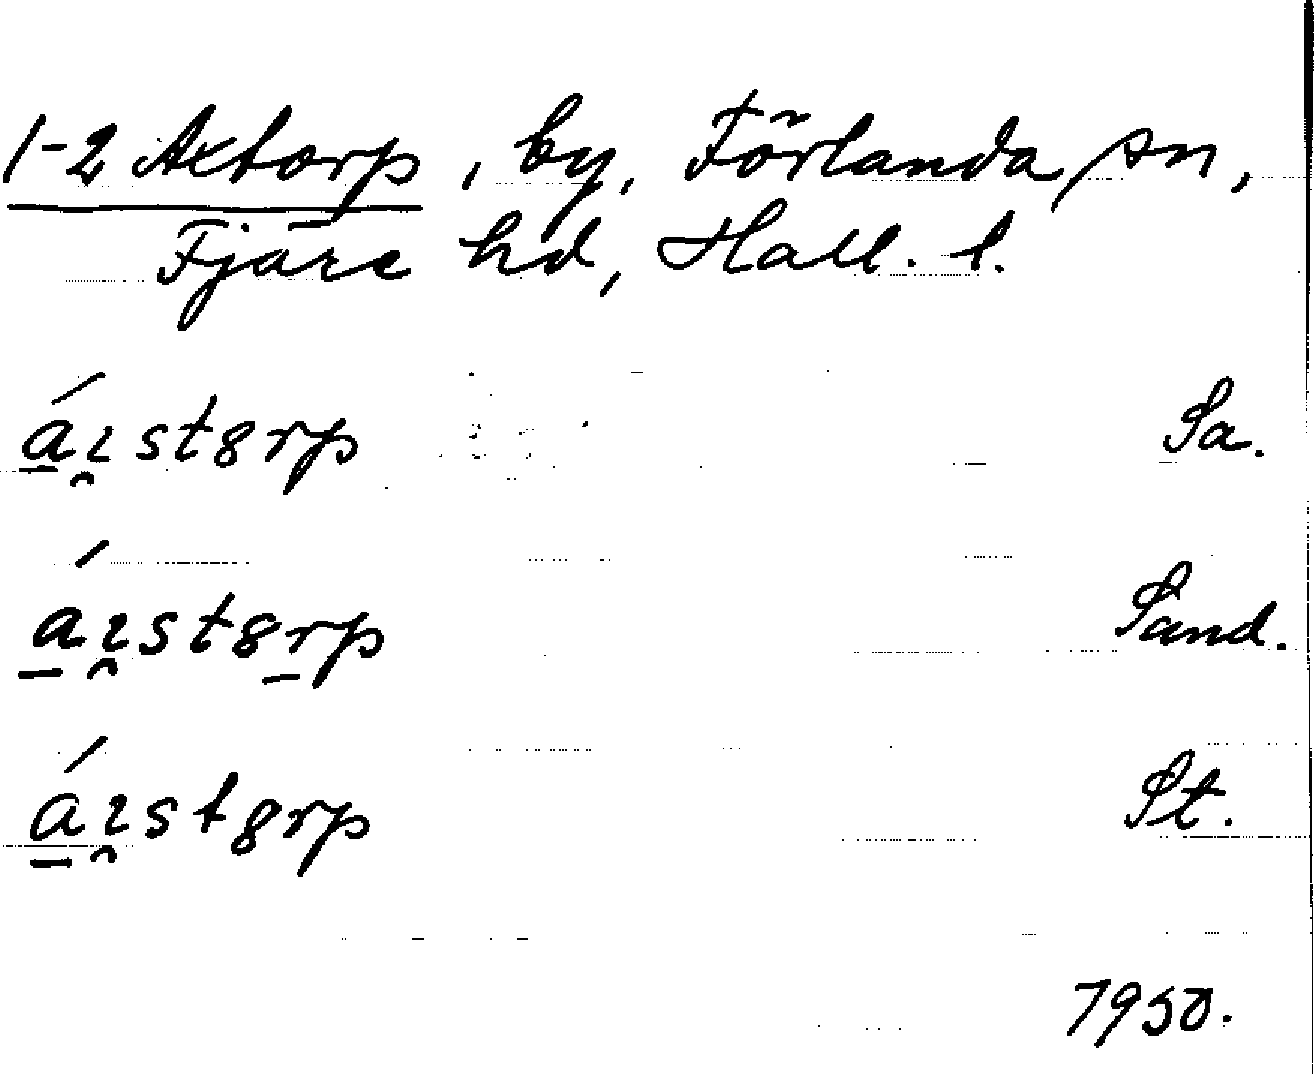 1-2 Axtorp, by, Förlanda sn,
Fjäre hd, Hall. l.
á̱ı̯st8rp Sa.
á̱ı̯st8ṟp Sand.
á̱ı̯st8rp St.
1950.